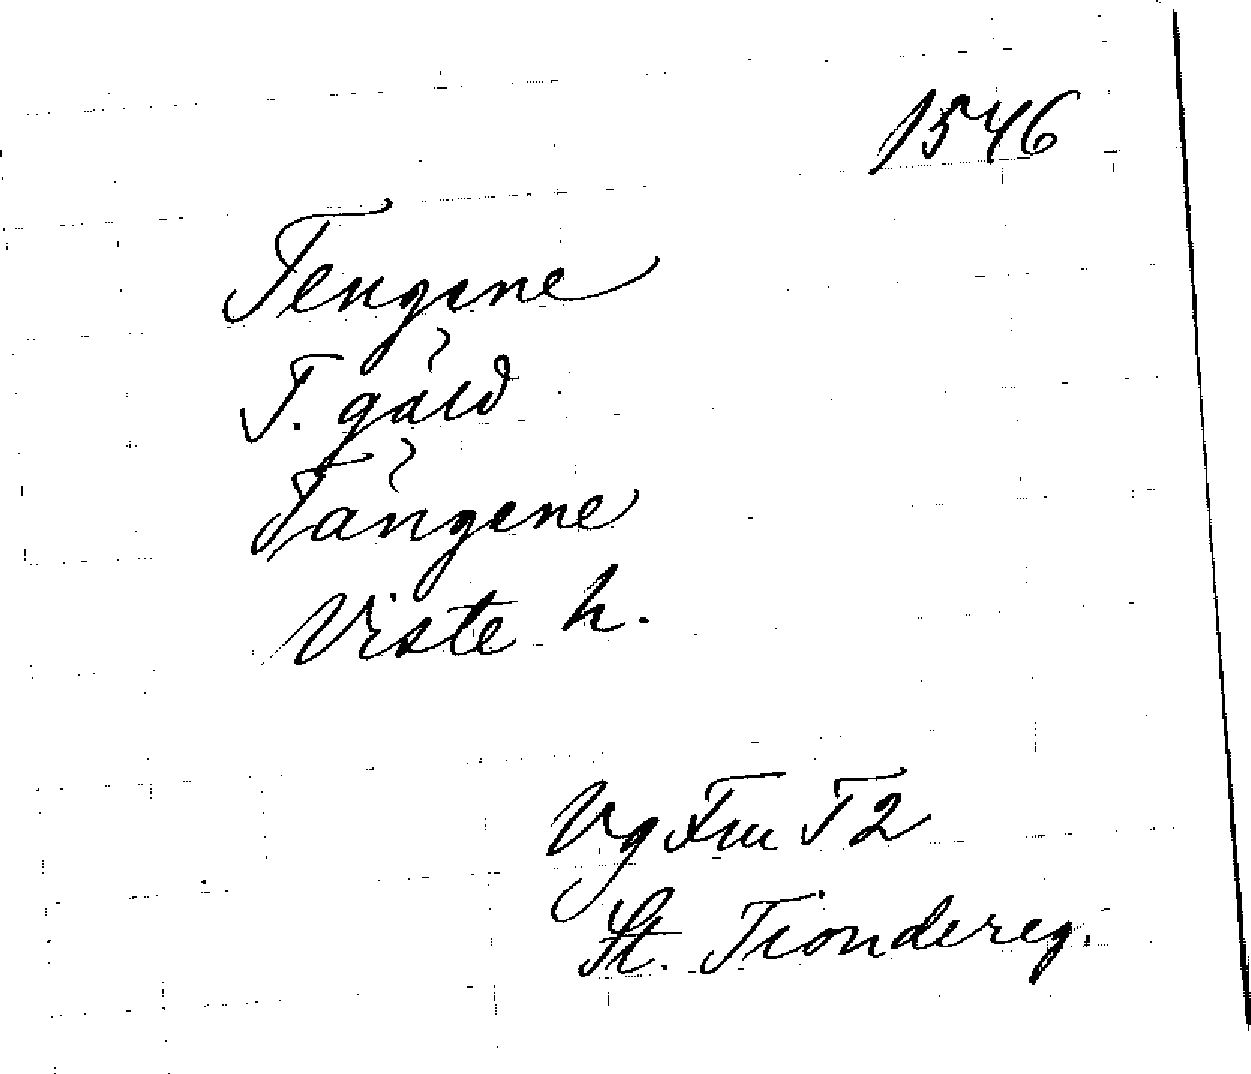 1546
Tengene
T. gäld
Tängene
Viste h.
Vg Fm T2
St. Tiondereg.